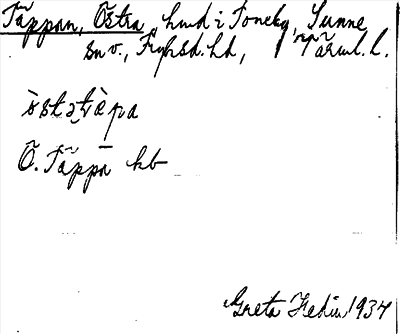 Täppan, Östra, hmd i Toneby, Sunne
sn v., Fryksd. hd, Värml. l.
östətäpa
Ö. Täppa kb
Greta Hedin 1937